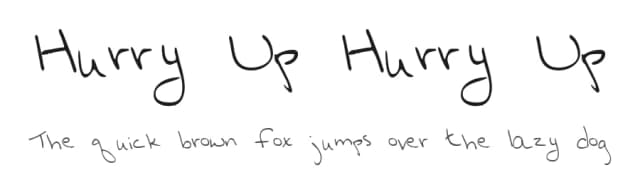 Hurry Up Hurry Up
The quick brown fox jumps over the lazy dog